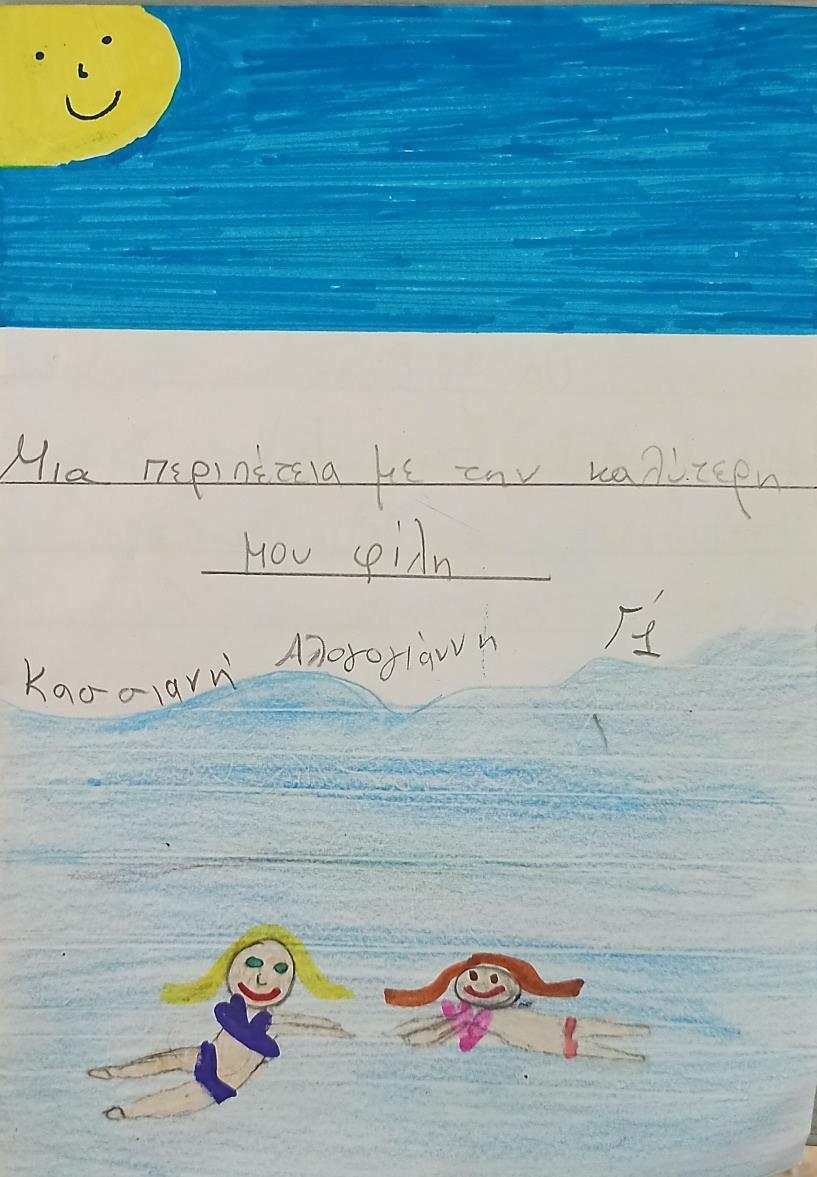 Μια περιπέτεια με την καλύτερη
μου φίλη
Κασσιανή Αλογογιάννη Γ'1